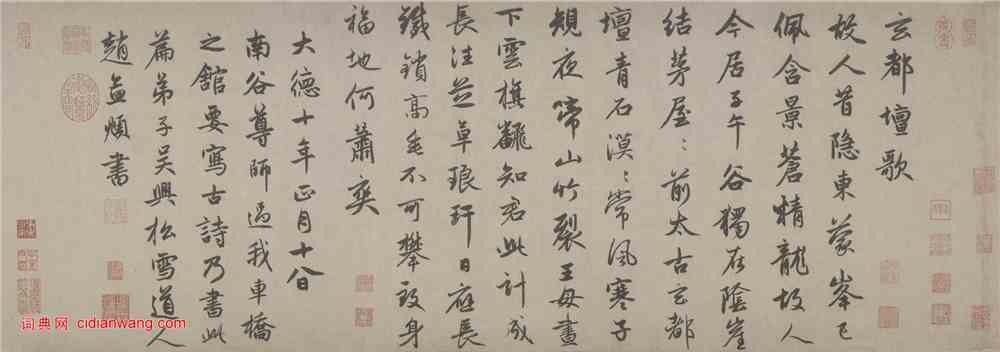 玄都壇歌
故人昔隐東蒙峯已
佩含景蒼精龍故人
今居子午谷獨在陰崖
結茅屋:前太古玄都
壇青石漠:常風寒子
規夜啼山竹裂王母晝
下雲旗翻知君此計成
長往芝草琅玕日應長
鐵鎖高垂不可攀致身
福地何蕭爽
大德十年正月十八日
南谷尊師過我車橋
之館要寫古詩乃書此
篇弟子吴興松雪道人
趙孟頫書
词典网 cidianwang.com